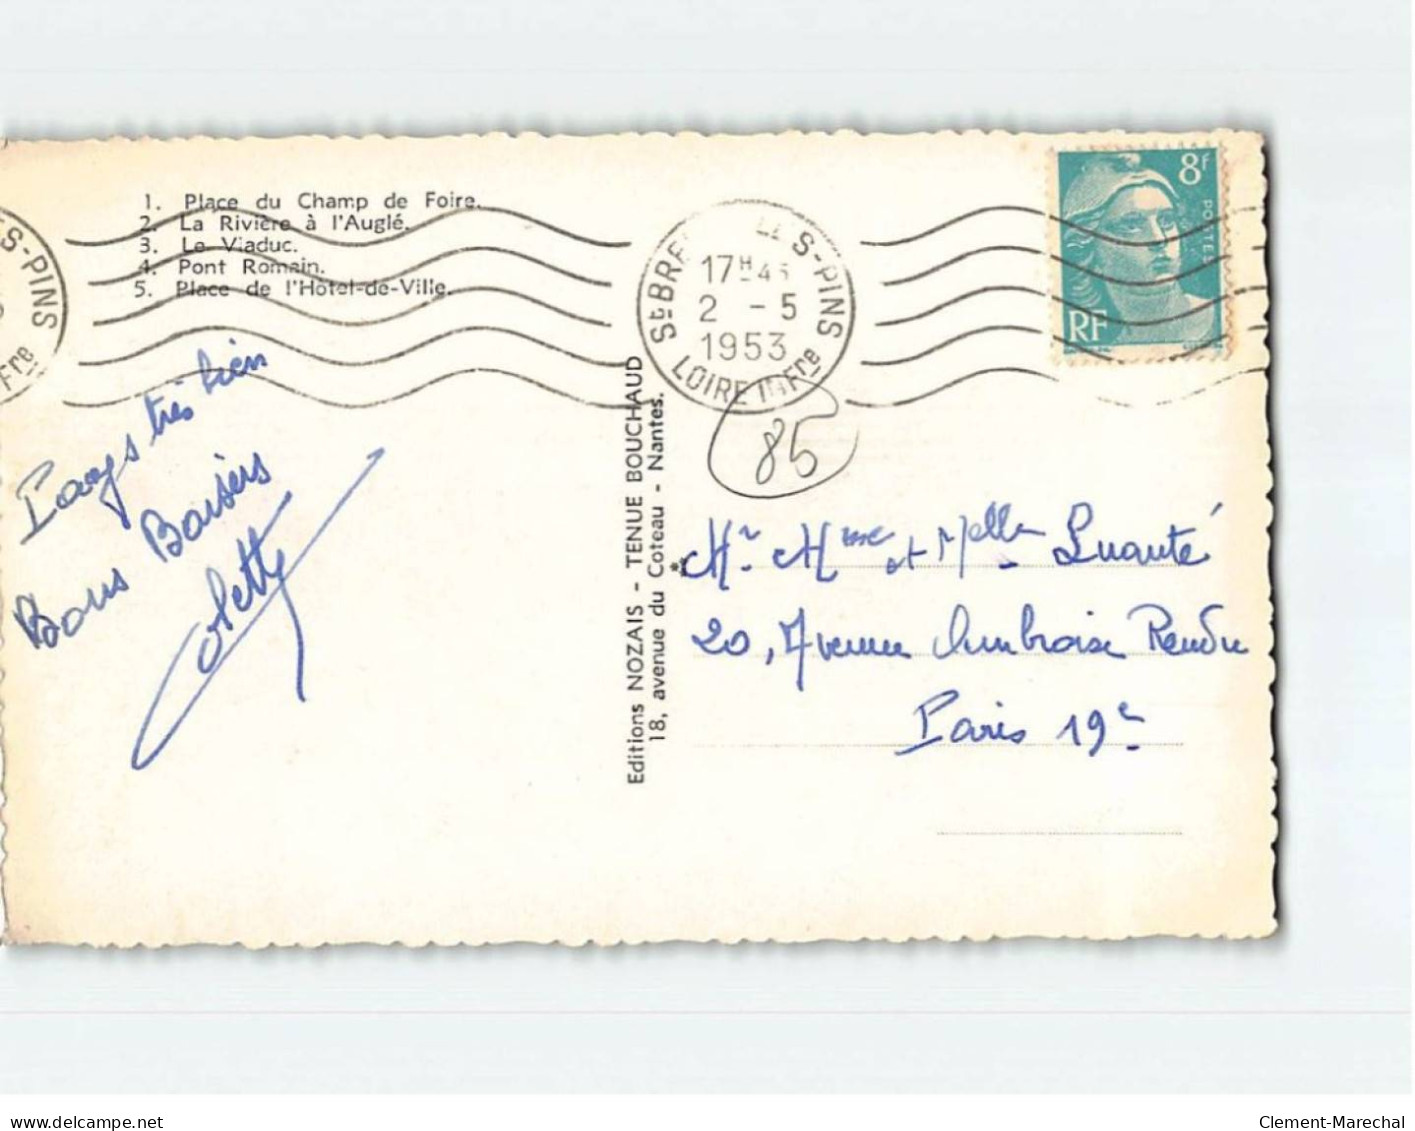 1. Place du Champ de Foire.
2. La Rivière à l'Auglé.
3. Le Viaduc.
4. Pont Romain.
5. Place de l'Hôtel-de-Ville.
S-PINS
Fre
St BRE S-PINS
17H45
2 - 5
1953
LOIRE InFre
8f
POSTES
RF
85
Pays très bien
Bons Baisers
Colette
Editions NOZAIS - TENUE BOUCHAUD
18, avenue du Coteau - Nantes.
Mr Mme et Melle
20, Avenue Ambroise Rendu
Paris 19e
delcampe.net
Clement-Marechal